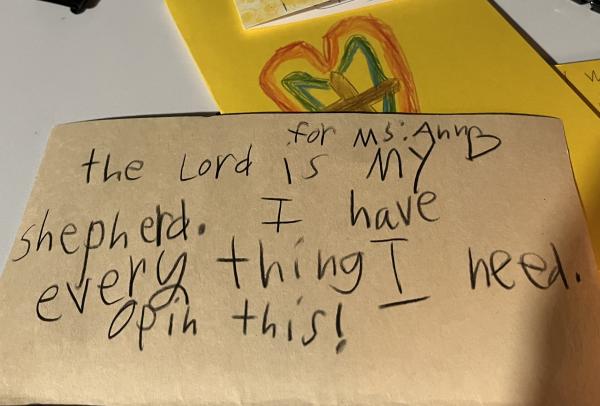 for Ms. Ann B
the Lord is My
shepherd. I have
every thing I need.
Opin this!